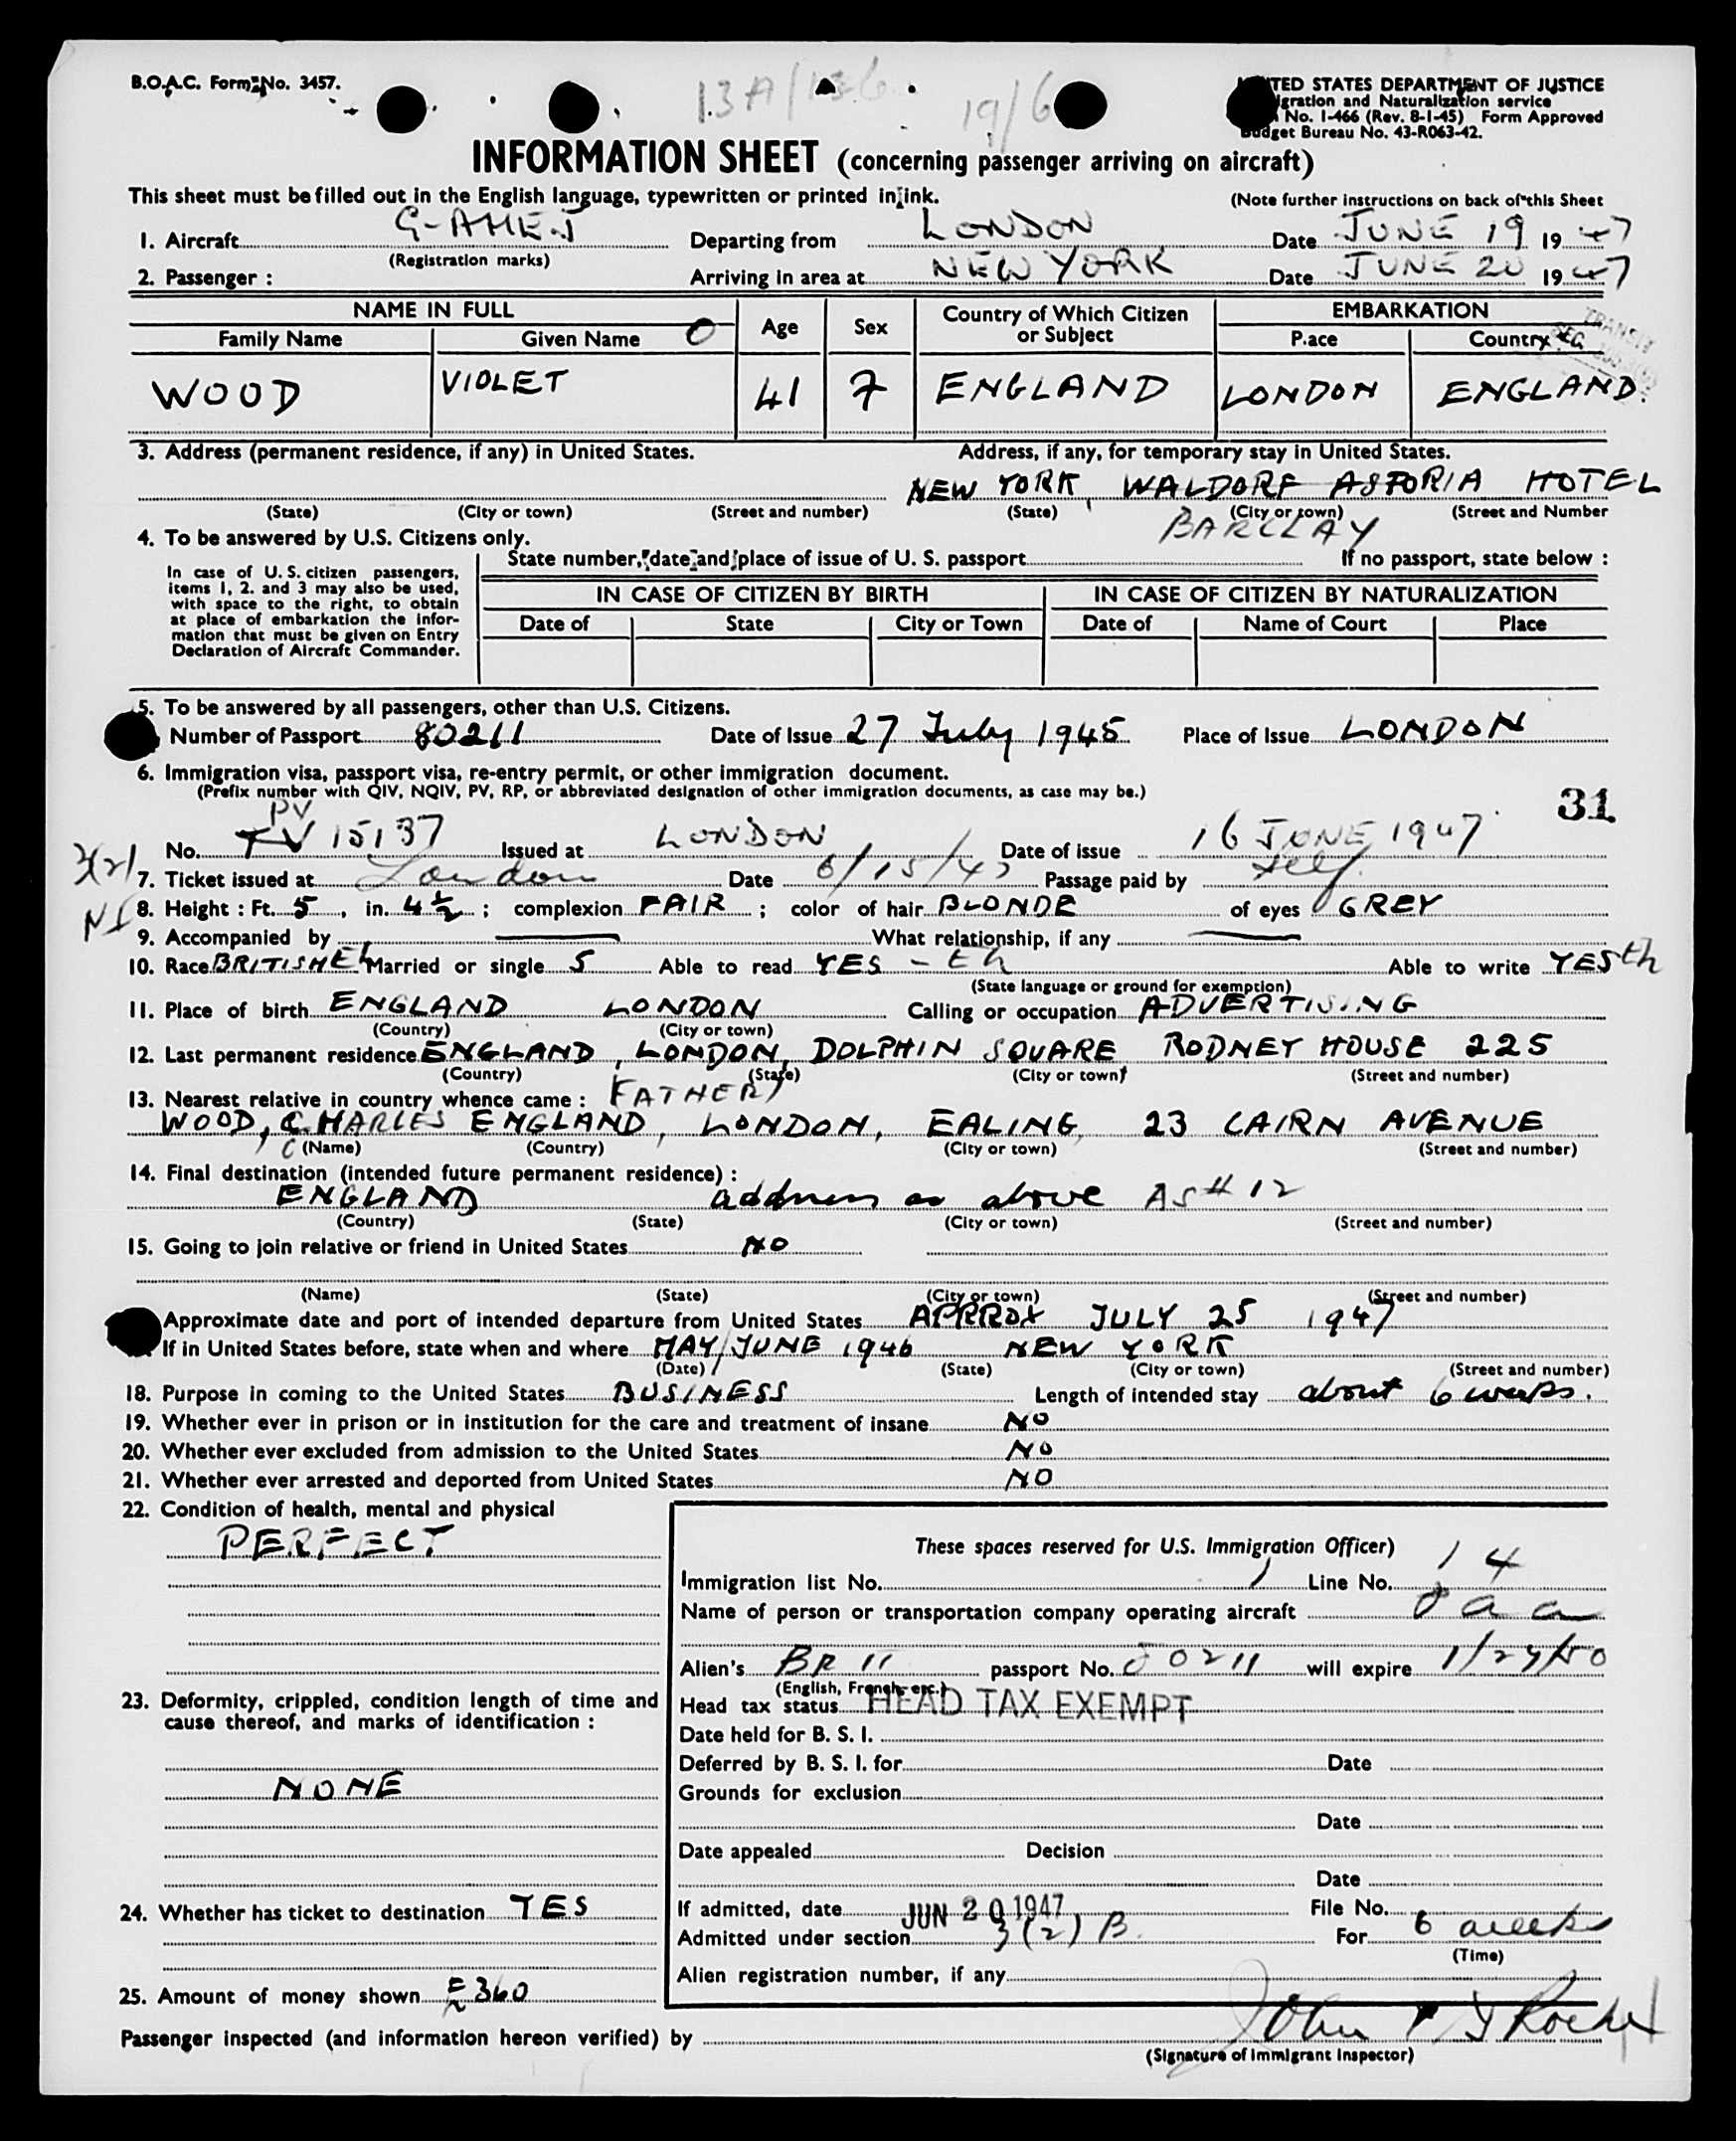 B.O.A.C. Form No. 3457.
13A/136
19/6
UNITED STATES DEPARTMENT OF JUSTICE
Immigration and Naturalization service
No. I-466 (Rev. 8-1-45) Form Approved
Budget Bureau No. 43-R063-42.
INFORMATION SHEET (concerning passenger arriving on aircraft)
This sheet must be filled out in the English language, typewritten or printed in ink.
(Note further instructions on back of this Sheet
1. Aircraft G-AHEJ Departing from LONDON Date JUNE 19 1947
(Registration marks)
2. Passenger : Arriving in area at NEW YORK Date JUNE 20 1947
NAME IN FULL Age Sex Country of Which Citizen or Subject EMBARKATION
Family Name Given Name O P.ace Country
TRANSIT
WOOD VIOLET 41 7 ENGLAND LONDON ENGLAND.
3. Address (permanent residence, if any) in United States. Address, if any, for temporary stay in United States.
NEW YORK, WALDORF ASTORIA HOTEL
(State) (City or town) (Street and number) (State) (City or town) (Street and Number
BARCLAY
4. To be answered by U.S. Citizens only.
State number, date and place of issue of U. S. passport If no passport, state below :
In case of U. S. citizen passengers,
items 1, 2. and 3 may also be used,
with space to the right, to obtain
at place of embarkation the infor-
mation that must be given on Entry
Declaration of Aircraft Commander.
IN CASE OF CITIZEN BY BIRTH IN CASE OF CITIZEN BY NATURALIZATION
Date of State City or Town Date of Name of Court Place
5. To be answered by all passengers, other than U.S. Citizens.
Number of Passport 80211 Date of Issue 27 July 1945 Place of Issue LONDON
6. Immigration visa, passport visa, re-entry permit, or other immigration document.
(Prefix number with QIV, NQIV, PV, RP, or abbreviated designation of other immigration documents, as case may be.)
31
PV
No. TV 15137 Issued at LONDON Date of issue 16 JUNE 1947
3(2)
7. Ticket issued at London Date 6/15/47 Passage paid by Self
8. Height : Ft. 5, in. 4½ ; complexion FAIR ; color of hair BLONDE of eyes GREY
9. Accompanied by — What relationship, if any —
10. Race BRITISH Married or single S Able to read YES - Eh Able to write YES
(State language or ground for exemption)
11. Place of birth ENGLAND LONDON Calling or occupation ADVERTISING
(Country) (City or town)
12. Last permanent residence ENGLAND, LONDON, DOLPHIN SQUARE RODNEY HOUSE 225
(Country) (State) (City or town) (Street and number)
13. Nearest relative in country whence came : (FATHER)
WOOD, CHARLES ENGLAND, LONDON, EALING, 23 CAIRN AVENUE
(Name) (Country) (City or town) (Street and number)
14. Final destination (intended future permanent residence) :
ENGLAND address as above AS # 12
(Country) (State) (City or town) (Street and number)
15. Going to join relative or friend in United States NO
(Name) (State) (City or town) (Street and number)
Approximate date and port of intended departure from United States APPROX JULY 25 1947
If in United States before, state when and where MAY/JUNE 1946 NEW YORK
(Date) (State) (City or town) (Street and number)
18. Purpose in coming to the United States BUSINESS Length of intended stay about 6 weeks.
19. Whether ever in prison or in institution for the care and treatment of insane NO
20. Whether ever excluded from admission to the United States NO
21. Whether ever arrested and deported from United States NO
22. Condition of health, mental and physical
PERFECT
23. Deformity, crippled, condition length of time and
cause thereof, and marks of identification :
NONE
24. Whether has ticket to destination YES
25. Amount of money shown £360
These spaces reserved for U.S. Immigration Officer)
Immigration list No. 1 Line No. 14
Name of person or transportation company operating aircraft
Alien's BR passport No. 80211 will expire
(English, French, etc.)
Head tax status HEAD TAX EXEMPT
Date held for B. S. I.
Deferred by B. S. I. for Date
Grounds for exclusion
Date
Date appealed Decision
Date
If admitted, date JUN 20 1947 File No.
Admitted under section 3(2) B. For 6 weeks
(Time)
Alien registration number, if any
Passenger inspected (and information hereon verified) by John
(Signature of Immigrant Inspector)